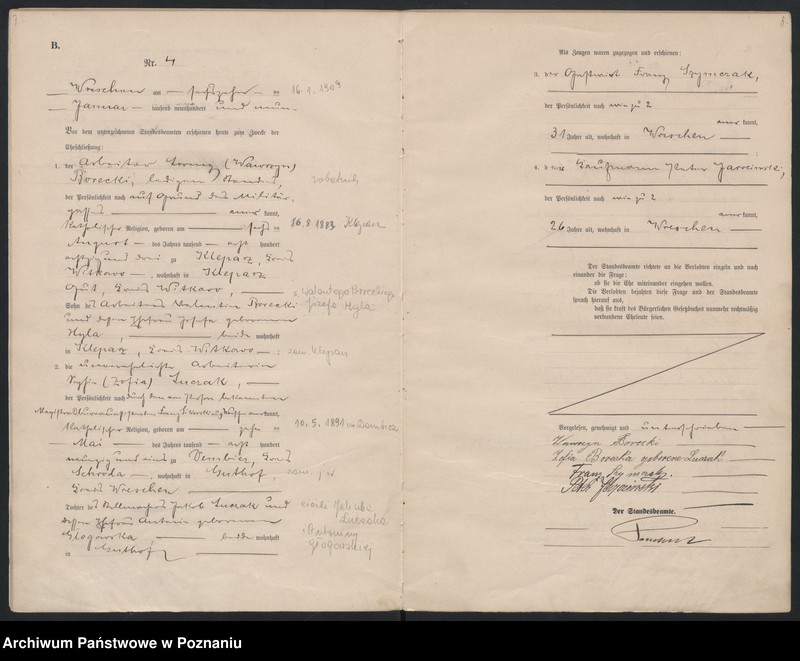 B.
Nr. 4
Wreschen am sechszehn ten
Januar tausend neunhundert und neun.
16.1.1909
Vor dem unterzeichneten Standesbeamten erschienen heute zum Zwecke der
Eheschließung:
1. der Arbeiter Lorenz (Wawrzyn)
Borecki, ledigen Standes,
robotnik
der Persönlichkeit nach auf Grund des Militär-
passes anerkannt,
katholischer Religion, geboren am sechs ten
16.8.1883 Kleparz
August des Jahres tausend acht hundert
achtzig und drei zu Kleparz, Kreis
Witkowo, wohnhaft in Kleparz
Gut, Kreis Witkowo,
Sohn des Arbeiters Valentin Borecki
s. Walentego Boreckiego
und dessen Ehefrau Josefa geborenen
Józefa Hyla
Hyla, beide wohnhaft
in Kleparz, Kreis Witkowo.
zam. Kleparz
2. die unverehelichte Arbeiterin
Sophie (Zofia) Luczak,
der Persönlichkeit nach durch den von Person bekannten
anerkannt,
katholischer Religion, geboren am zehn ten
10.5.1891 w Dembicz
Mai des Jahres tausend acht hundert
neunzig und eins zu Dembicz, Kreis
Schroda, wohnhaft in Guthof,
zam. j.w.
Kreis Wreschen
Tochter des Stellmachers Jakob Luczak und
córka Jakuba
Luczaka
dessen Ehefrau Antonie geborenen
i Antoniny
Glogowska beide wohnhaft
Głogowskiej
in Guthof
8.
Als Zeugen waren zugezogen und erschienen:
3. der Gastwirt Franz Szymczak,
der Persönlichkeit nach wie zu 2
anerkannt,
31 Jahre alt, wohnhaft in Wreschen
;
4. der Kaufmann Peter Jarocinski,
der Persönlichkeit nach wie zu 2
anerkannt,
26 Jahre alt, wohnhaft in Wreschen
Der Standesbeamte richtete an die Verlobten einzeln und nach
einander die Frage:
ob sie die Ehe miteinander eingehen wollen.
Die Verlobten bejahten diese Frage und der Standesbeamte
sprach hierauf aus,
daß sie kraft des Bürgerlichen Gesetzbuchs nunmehr rechtmäßig
verbundene Eheleute seien.
Vorgelesen, genehmigt und unterschrieben
Wawrzyn Borecki
Zofia Borecka geborene Luczak
Franz Szymczak
Der Standesbeamte.
Archiwum Państwowe w Poznaniu